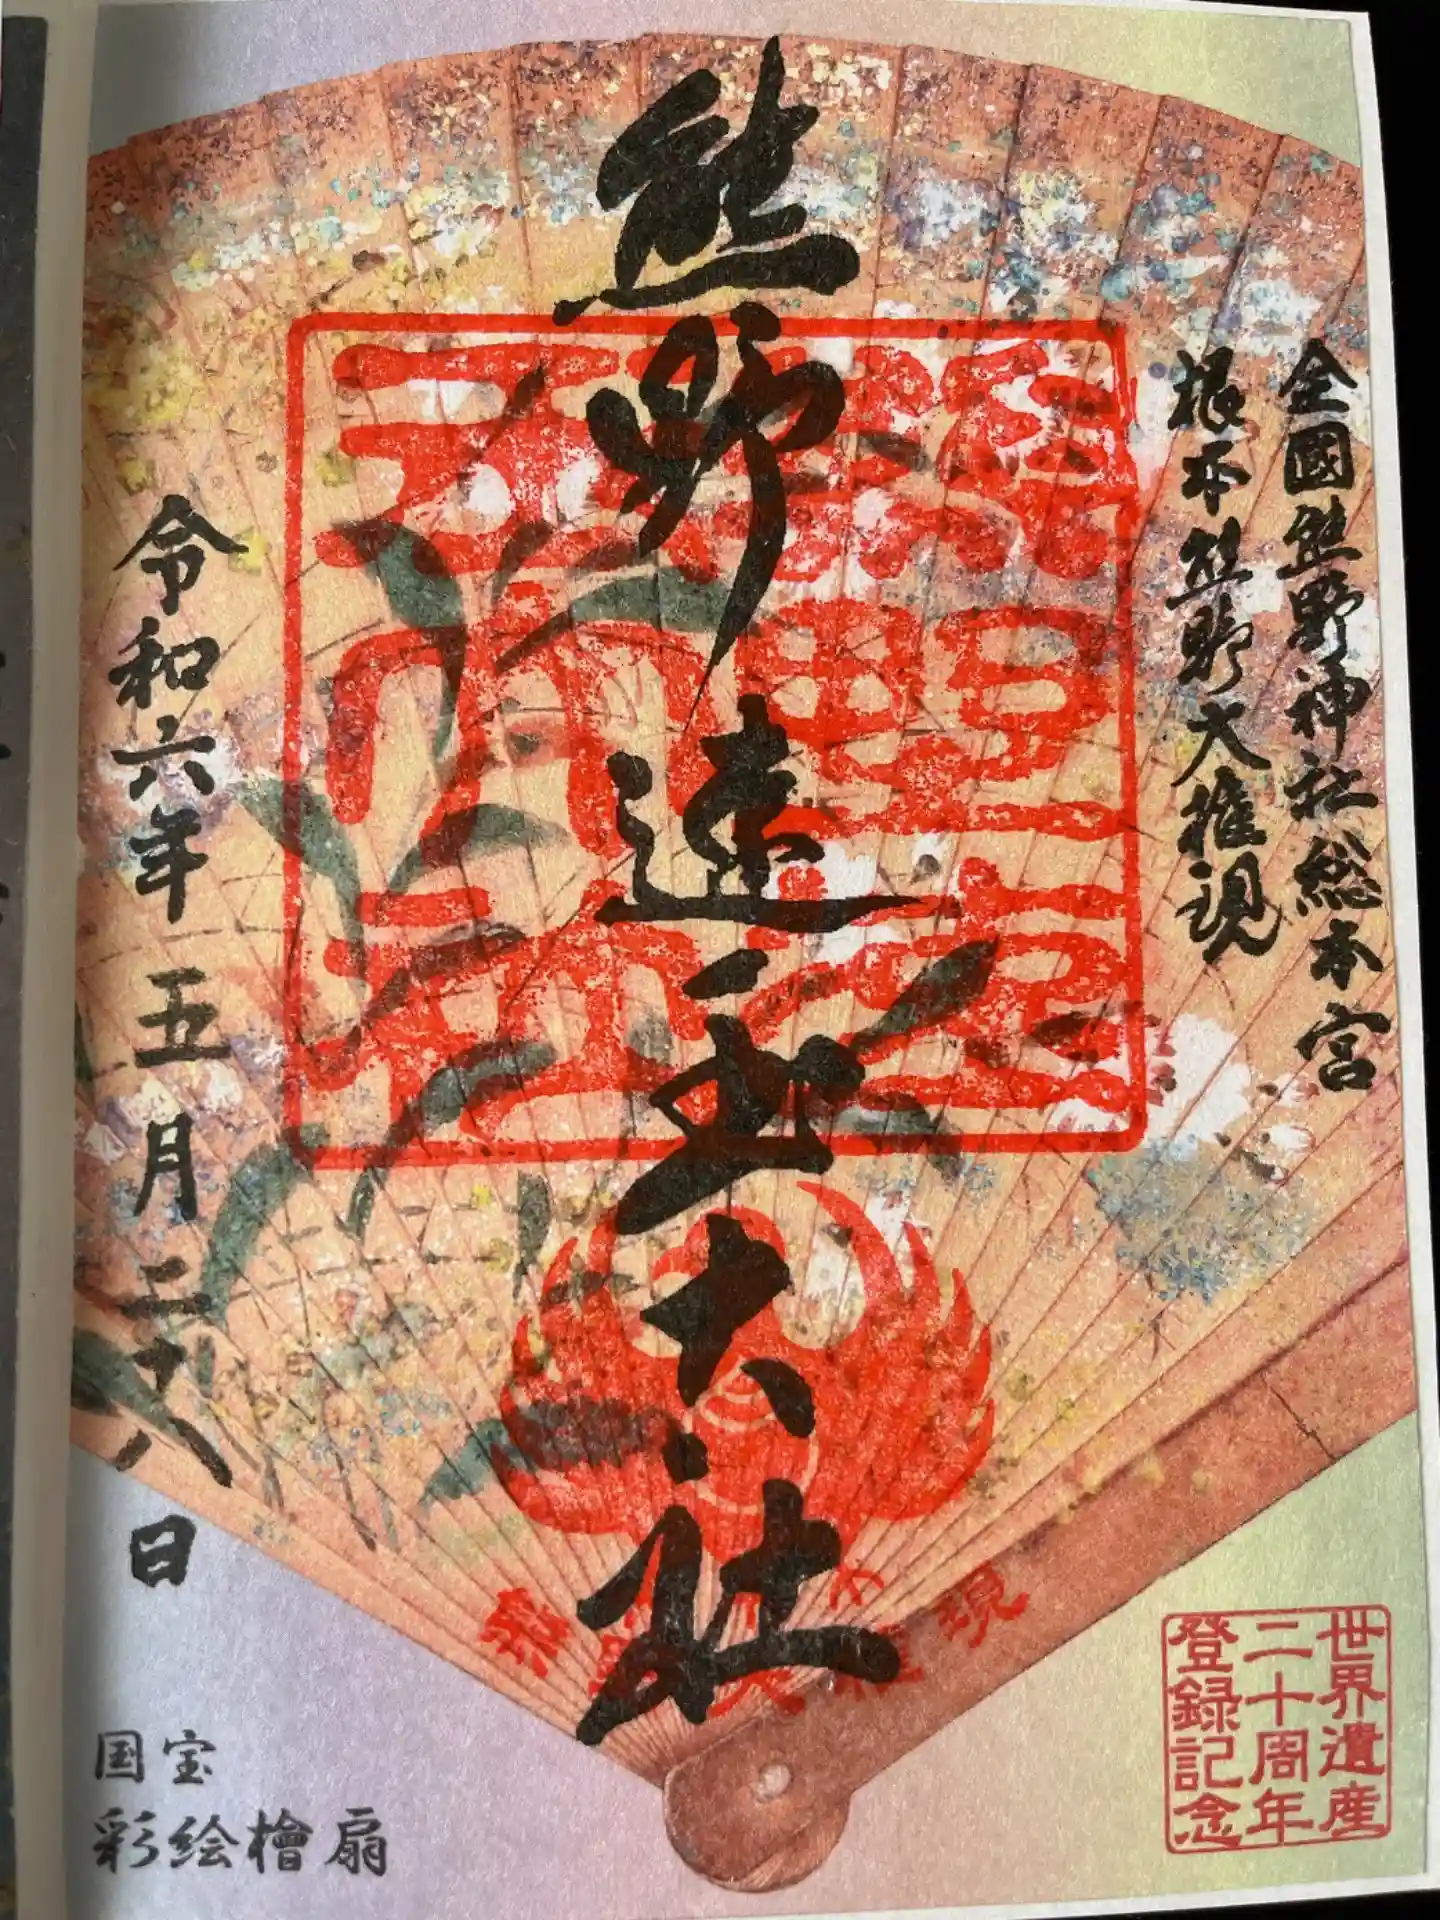 全國熊野神社総本宮
根本熊野大権現
熊野速玉大社
令和六年五月二十八日
国宝
彩絵檜扇
世界遺産
二十周年
登録記念